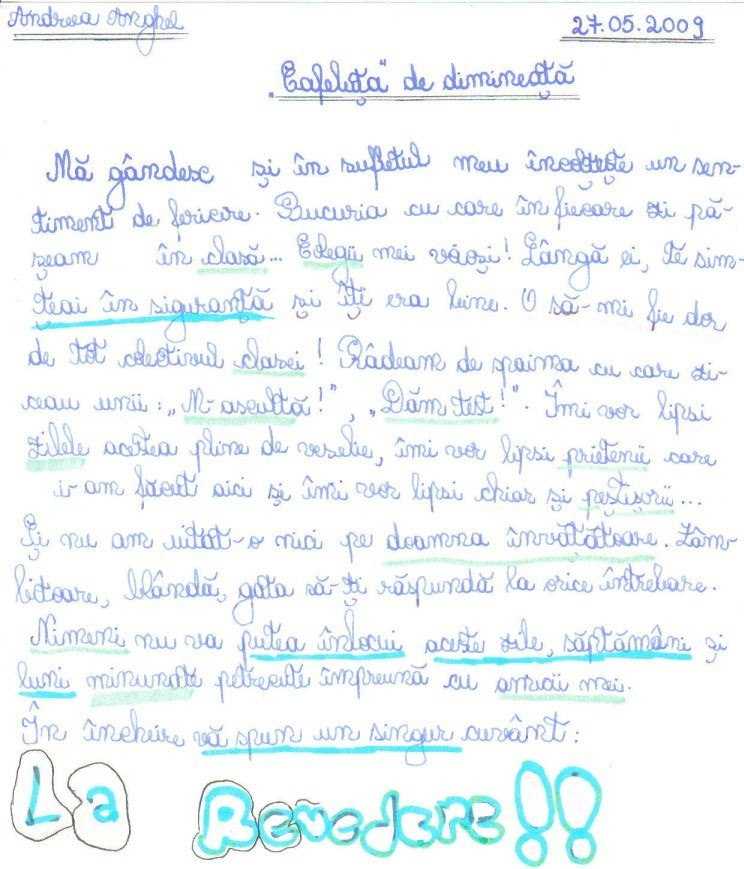 Andreea Anghel
27.05.2009
„Cafeluța" de dimineață
Mă gândesc și în sufletul meu încolțește un sen-
timent de fericire. Bucuria cu care în fiecare zi pă-
șeam în clasă... Colegii mei vărzi! Lângă ei, te sim-
țeai în siguranță și îți era bine. O să-mi fie dor
de tot colectivul clasei! Râdeam de spaima cu care zi-
ceau unii: „N-ascultă!", „Dăm test!". Îmi vor lipsi
zilele acestea pline de veselie, îmi vor lipsi prietenii care
i-am făcut aici și îmi vor lipsi chiar și peștișorii...
Și nu am uitat-o nici pe doamna învățătoare. Zâm-
bitoare, blândă, gata să-ți răspundă la orice întrebare.
Nimeni nu va putea înlocui aceste zile, săptămâni și
luni minunate petrecute împreună cu amicii mei.
În încheire vă spun un singur cuvânt:
La Revedere!!